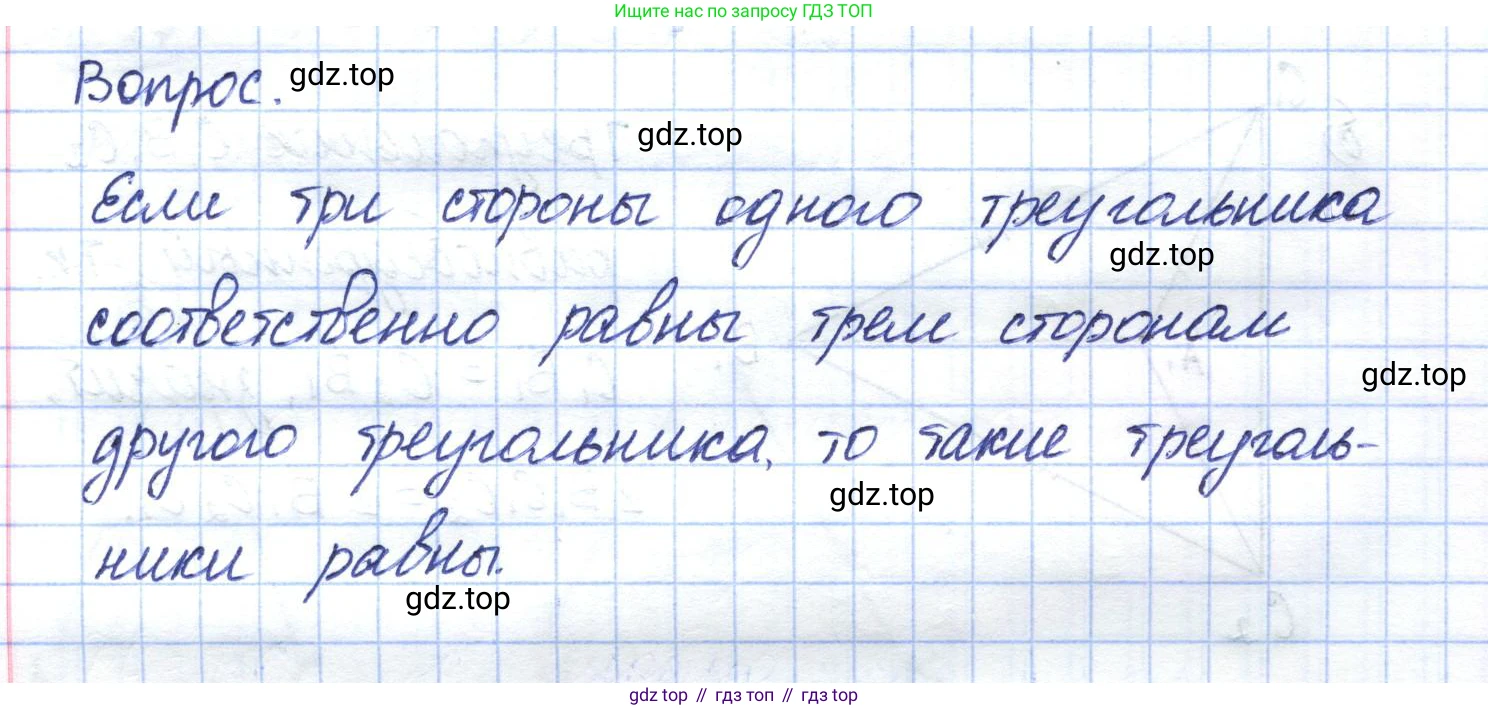 Ищите нас по запросу ГДЗ ТОП
Вопрос. gdz.top
gdz.top
Если три стороны одного треугольника
gdz.top
соответственно равны трем сторонам
gdz.top
другого треугольника, то такие треуголь-
gdz.top
ники равны.
gdz.top
gdz top // гдз топ // gdz top